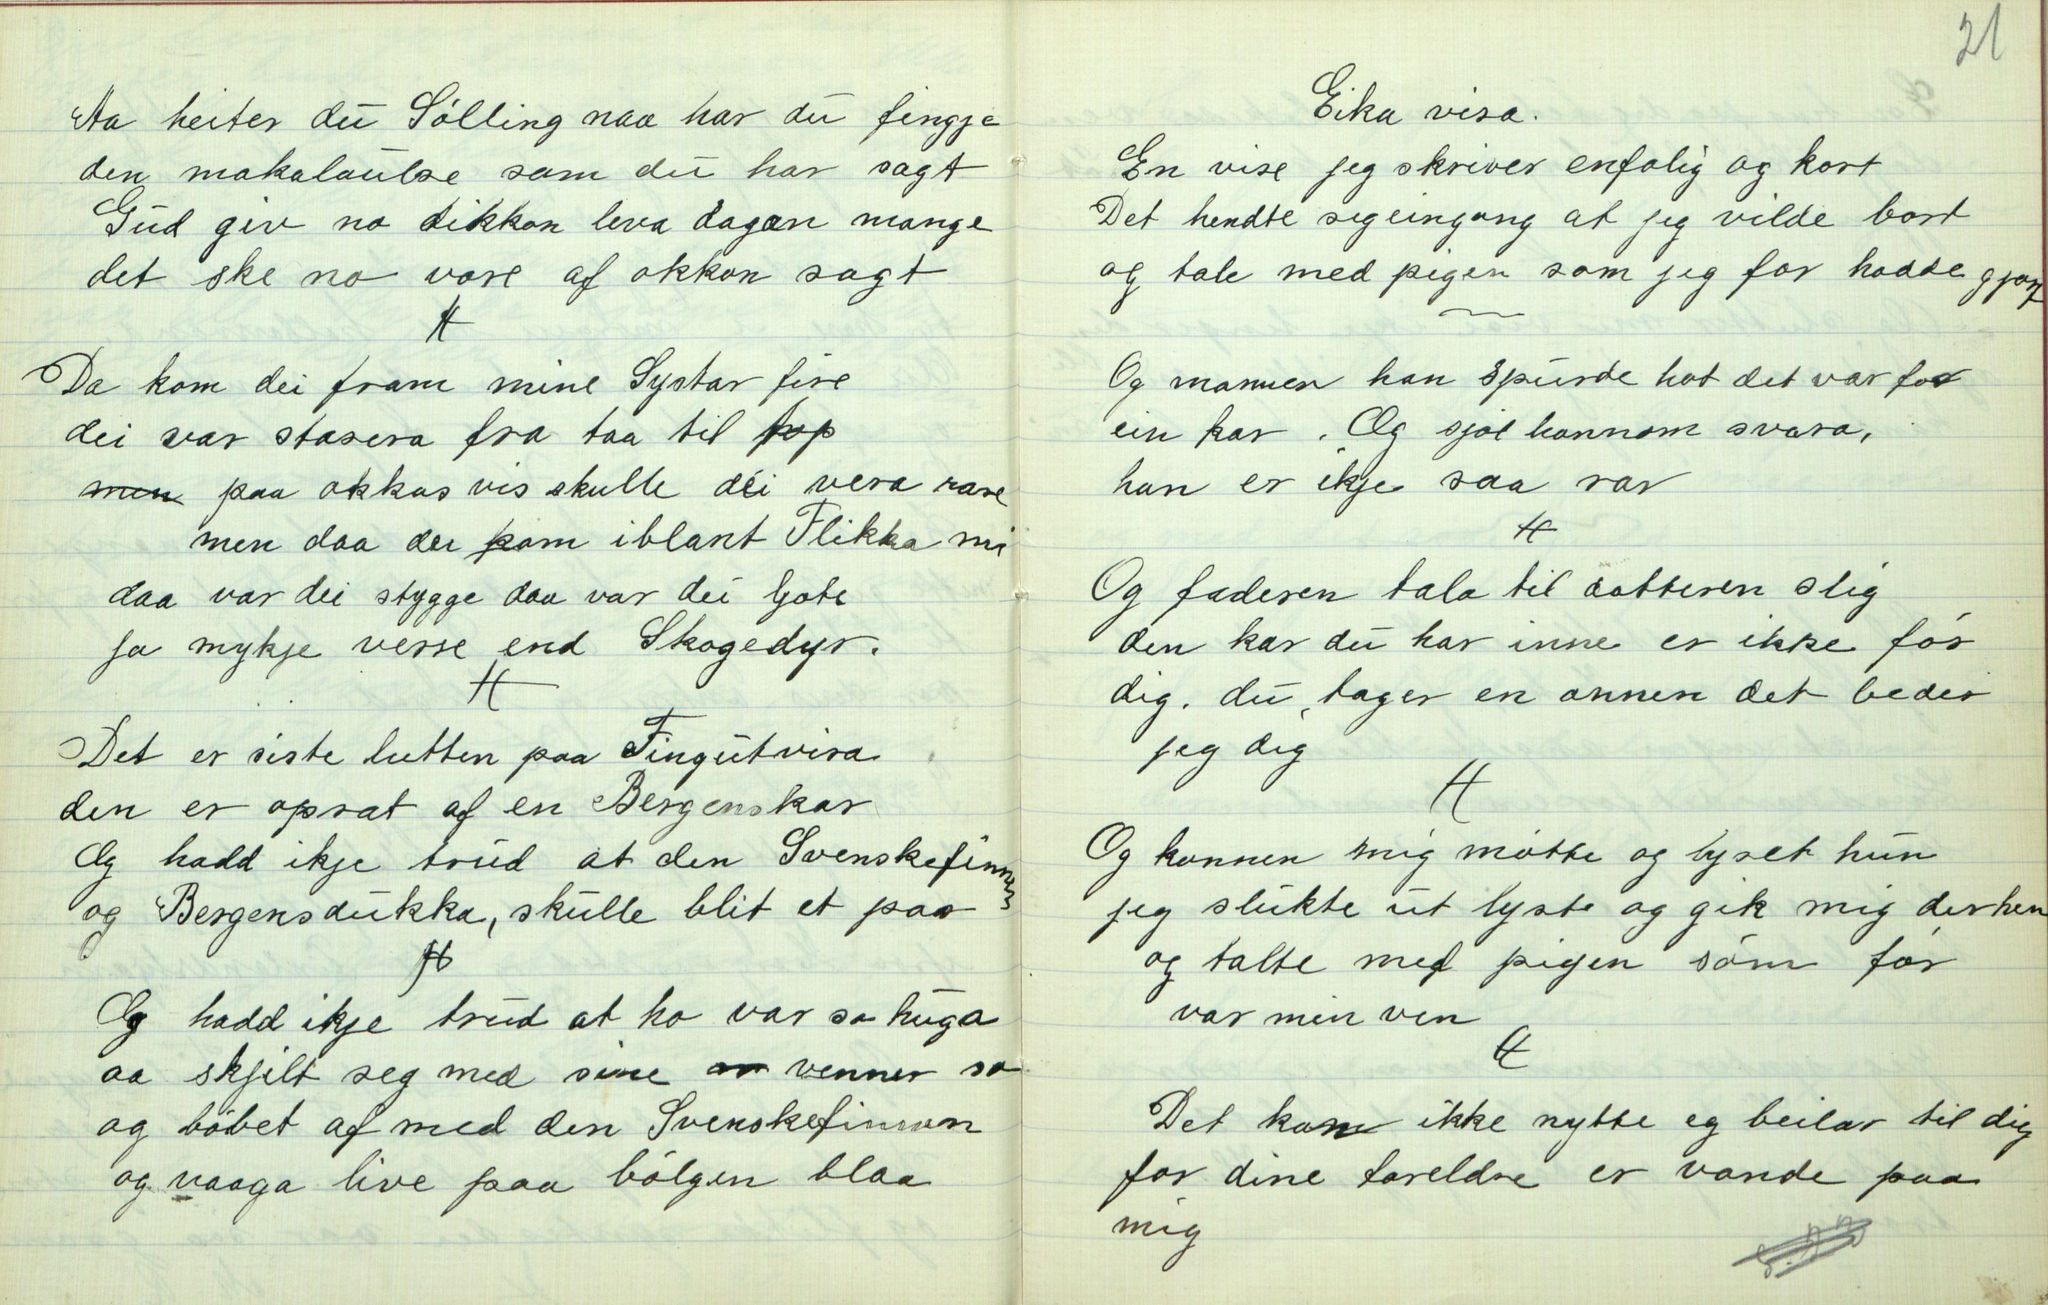 Aa heiter du Sølling naa har du fingje
den makalaulse som du har sagt
Gud giv no dikkon leva dagan mange
det ske no vore af okkon sagt
Da kom dei fram mine Systar fire
dei var stasera fra taa til top
men paa okkas vis skulle dei vera rare
men daa dei kom iblant Flikka mi
daa var dei stygge daa var dei ljote
ja mykje verre end Skogedyr.
Det er siste lutten paa Fingutvisa
den er oprat af en Bergenskar
Og hadd ikje trud at den Svenskefinnen
og Bergensdukka, skulle blit et par
Og hadd ikje trud at ho var so huga
aa skjilt seg med sine venner so
og bøbet af med den Svenskefinnon
og vaaga live paa bølgen blaa
21
Eika visa.
En vise jeg skriver enfolig og kort
Det hendte segeingang at jeg vilde bort
og tale med pigen som jeg for hadde gjort
Og mannen han spurde hot det var for
ein kar. Og sjøl honnom svara,
han er ikje saa rar
Og faderen tala til dotteren slig
den kar du har inne er ikke før
dig. du tager en annen det beder
jeg dig
Og konnen mig møtte og lyset hun
jeg slukte ut lyste og gik mig derhen
og talte med pigen søm før
var min ven
Det kom ikke nytte eg beilar til dig
for dine foreldre er vonde paa
mig